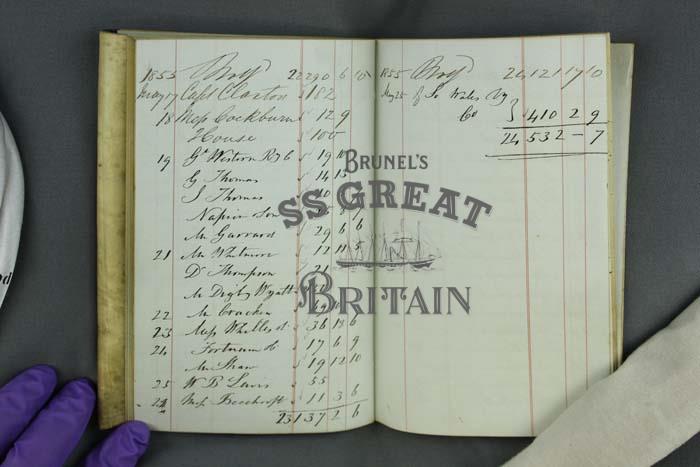 1855 Brot 22290 6 10
May 17 Capt Claxton 182
18 Mess Cockburn 12 9
House 100
19 Gt Western Ry C 19 10
G Thomas 14 15
S Thomas
Napier Son
Mr Garrard 29 6 6
21 Mr Whitmore 12 11 5
Dr Thompson 21
Mr Digby Wyatt
22 Mr
23 Mess 36 18 6
24 Fortnum 17 6 9
Mr Shaw 19 12 10
25 W B Lewis 55
24 Mess Beechcroft 11 3 6
23137 2 6
1855 Brot 24121 17 10
May 25 So Wales Ry
Co } 410 2 9
24 532 - 7
BRUNEL'S
SS GREAT
BRITAIN